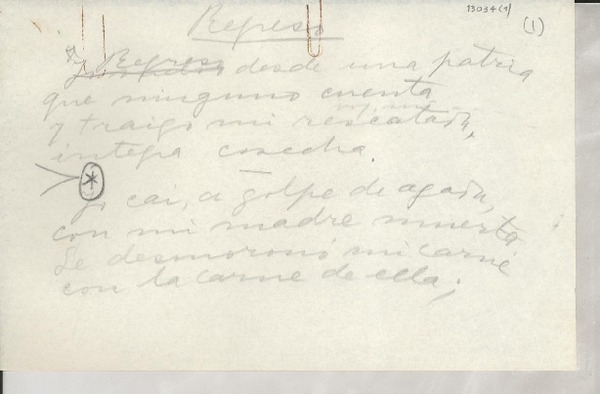 13034(1)
(1)
Regreso
Regreso desde una patria
que ninguno cuenta
y traigo mi rescatada,
íntegra cosecha.
*
Yo caí, a golpe de azada,
con mi madre muerta
Se desmoronó mi carne
con la carne de ella;